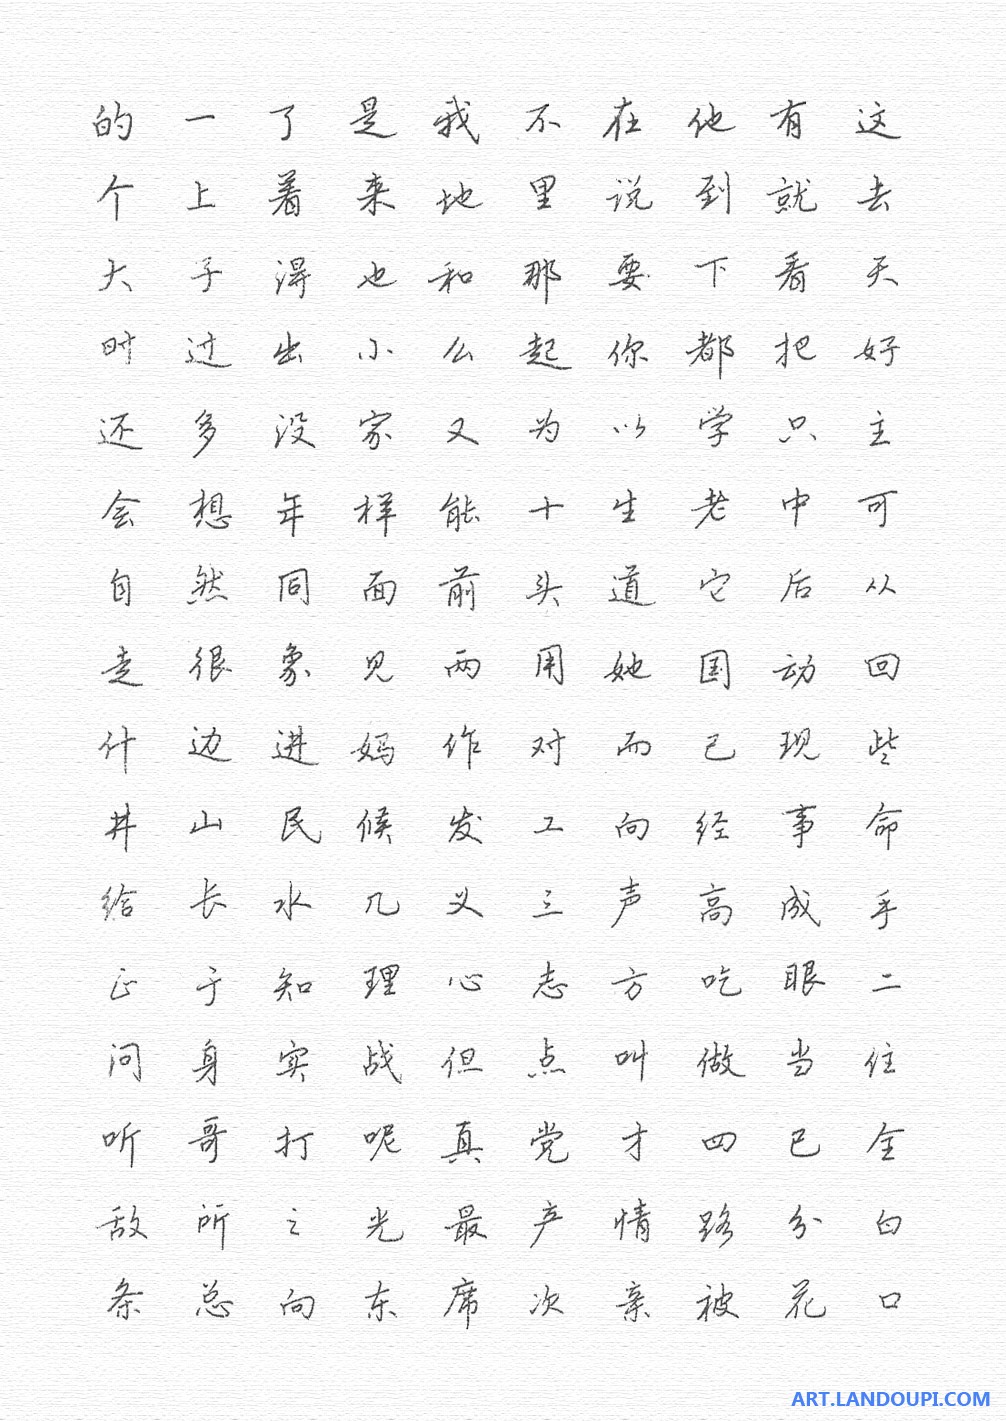 的一了是我不在他有这
个上着来地里说到就去
大子得也和那要下看天
时过出小么起你都把好
还多没家又为以学只主
会想年样能十生老中可
自然同面前头道它后从
走很象见两用她国动回
什边进妈作对而己现些
井山民候发工向经事命
给长水几义三声高成手
正于知理心志方吃眼二
问身实战但点叫做当住
听哥打呢真党才四已全
敌所之光最产情路分白
条总向东席次亲被花口
ART.LANDOUPI.COM